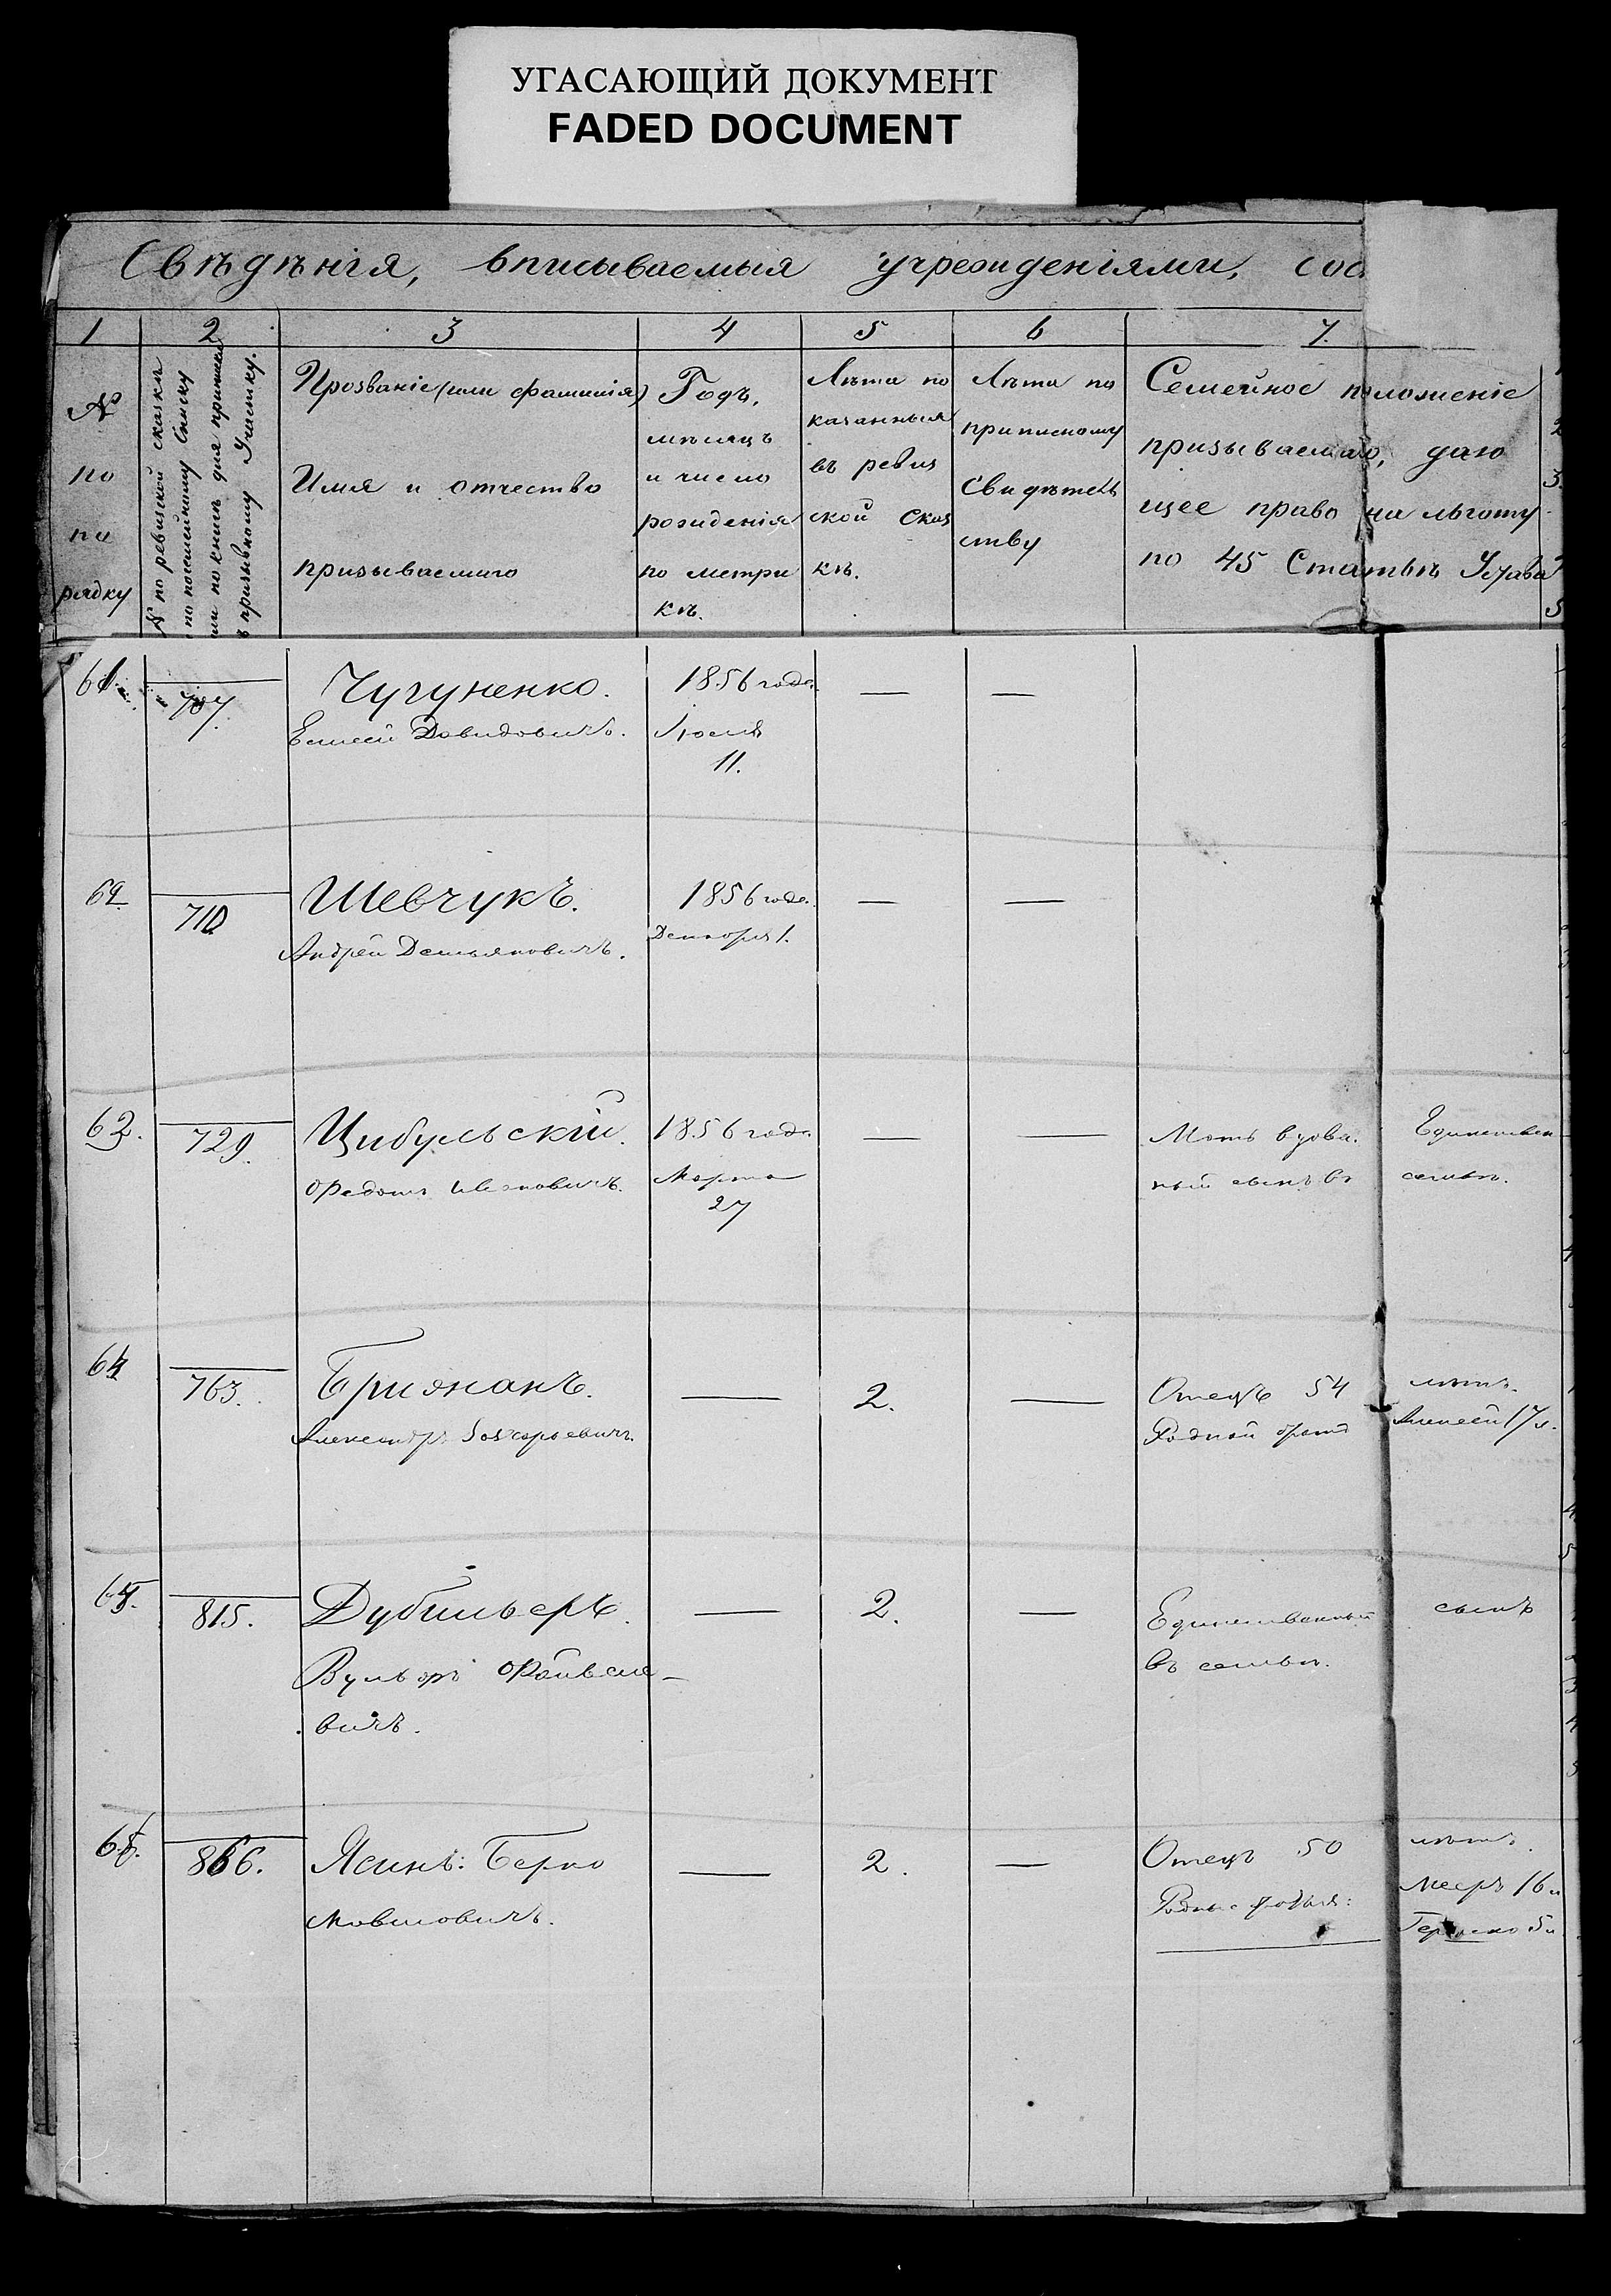 УГАСАЮЩИЙ ДОКУМЕНТ
FADED DOCUMENT
Свѣдѣнія, вписываемыя учрежденіями, сос
1 2 3 4 5 6 7.
№
по
по
рядку
№ по ревизской сказкѣ
по посемейному списку
или по книгѣ для приписки
призывному Участку.
Прозваніе (или фамилія)
Имя и отчество
призываемаго
Годъ,
мѣсяцъ
и число
рожденія
по метри
кѣ.
Лѣта по
казанныя
въ ревиз
ской сказ
кѣ.
Лѣта по
приписному
свидѣтель
ству
Семейное положеніе
призываемаго, даю
щее право на льготу
по 45 Статьѣ Устава
61. 707. Чугуненко. 1856 года — —
Елисей Давидовичъ. Іюля
11.
62 710 Шевчукъ. 1856 года. — —
Андрей Демьяновичъ. Декабря 1.
63. 729. Цибульскій. 1856 года. — — Мать вдова. Единствен
Федотъ Ивановичъ. Марта ный сынъ въ семьѣ.
27
64 763. Брижанъ. — 2. — Отецъ 54 лѣтъ.
Александръ Захарьевичъ. Родной братъ Алексей 17 л.
65. 815. Дубильеръ. — 2. — Единственный сынъ
Вульфъ Файвеле- въ семьѣ.
вичъ.
66. 866. Ясинъ: Берко — 2. — Отецъ 50 лѣтъ.
Мовшовичъ. Родные братья: Мееръ 16 л
5 л